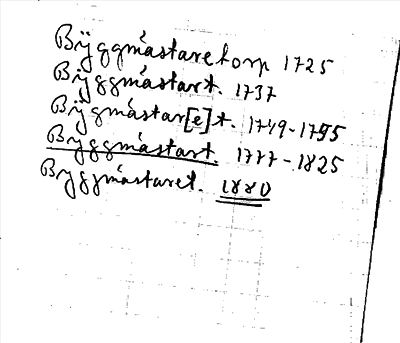 Bÿggmästaretorp 1725
Bÿggmästart. 1737
Bÿgmästar[e]t. 1749-1795
Byggmästart. 1777-1825
Byggmästaret. 1880